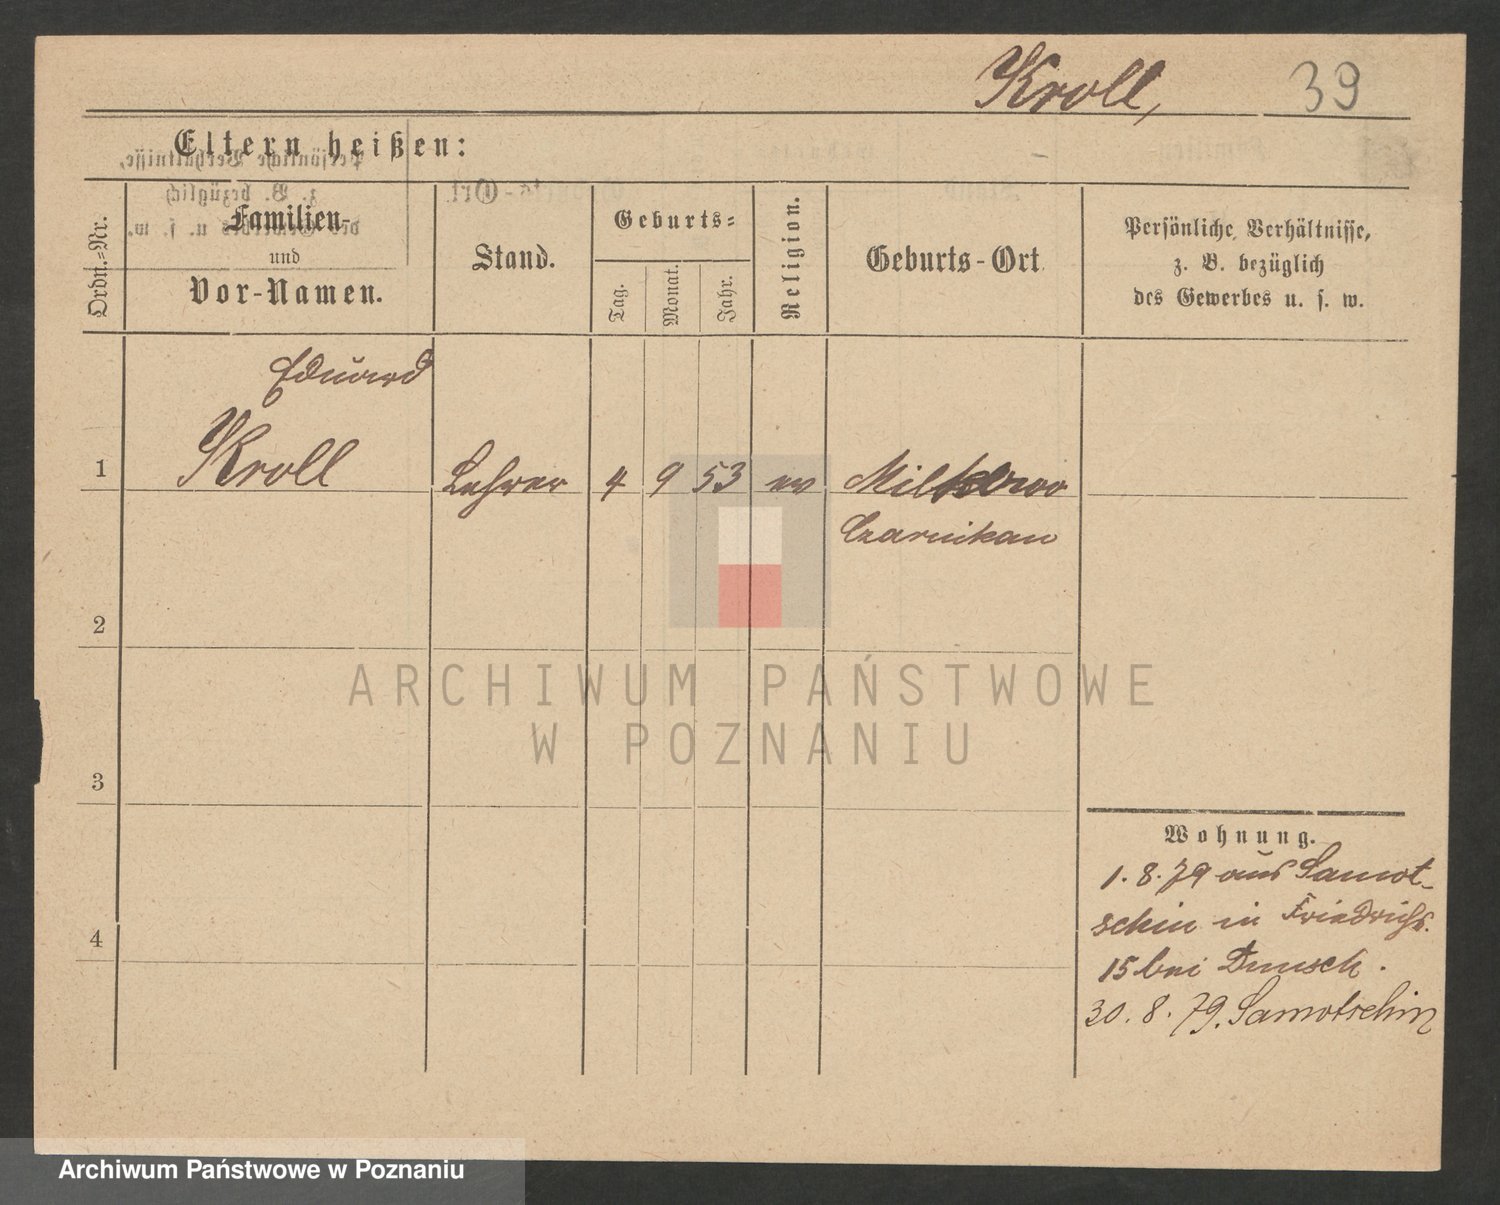 Kroll, 39
Eltern heißen:
Ordn.-Nr.
Familien-
und
Vor-Namen.
Stand.
Geburts-
Tag.
Monat.
Jahr.
Religion.
Geburts-Ort
Persönliche Verhältnisse,
z. B. bezüglich
des Gewerbes u. s. w.
Eduard
1 Kroll Lehrer 4 9 53 ev Milkowo
Czarnikau
2
3
4
Wohnung.
1. 8. 79 aus Samot-
schin in Friedrichs.
15 bei
30. 8. 79. Samotschin
ARCHIWUM PAŃSTWOWE
W POZNANIU
Archiwum Państwowe w Poznaniu